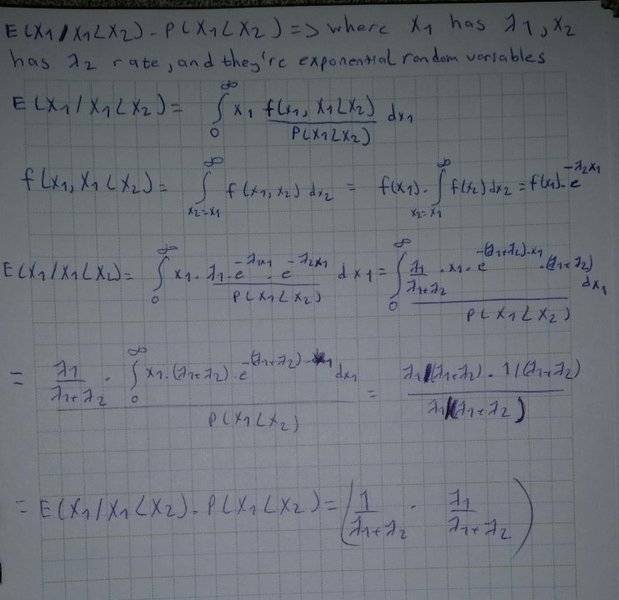 E(X1/X1<X2) - P(X1<X2) => where X1 has λ1, X2
has λ2 rate, and they're exponential random variables
E(X1/X1<X2) = ∫_0^∞ x1 f(x1, X1<X2)/P(X1<X2) dx1
f(x1, X1<X2) = ∫_{x2=x1}^∞ f(x1, x2) dx2 = f(x1) · ∫_{x2=x1}^∞ f(x2) dx2 = f(x1) · e^{-λ2x1}
E(X1/X1<X2) = ∫_0^∞ x1 · λ1 · e^{-λ1x1} · e^{-λ2x1}/P(X1<X2) dx1 = ∫_0^∞ λ1/λ1+λ2 · x1 · e^{-(λ1+λ2)·x1} · (λ1+λ2)/P(X1<X2) dx1
= λ1/λ1+λ2 · ∫_0^∞ x1 · (λ1+λ2) · e^{-(λ1+λ2)-x1} dx1/P(X1<X2) = λ1/(λ1+λ2) · 1/(λ1+λ2)/λ1/(λ1+λ2)
= E(X1/X1<X2) - P(X1<X2) = (1/λ1+λ2 · λ1/λ1+λ2)